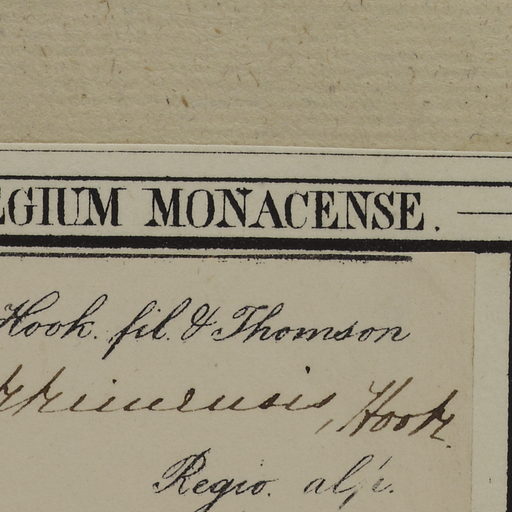 EGIUM MONACENSE.
Hook. fil. & Thomson
Hook.
Regio. alp.